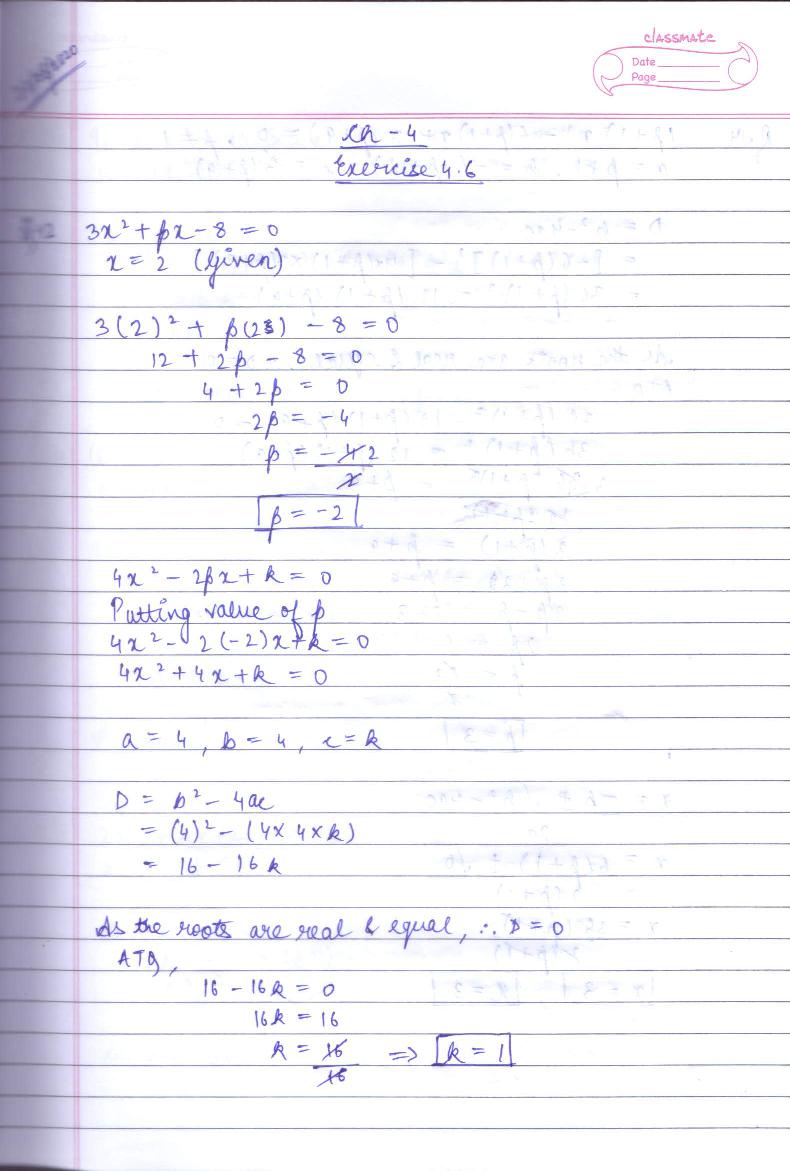 classmate
Date
Page
Ch - 4
Exercise 4.6
3x² + px - 8 = 0
x = 2 (Given)
3(2)² + p(2) - 8 = 0
12 + 2p - 8 = 0
4 + 2p = 0
2p = -4
p = -4 2
2
p = -2
4x² - 2px + k = 0
Putting value of p
4x² - 2(-2)x + k = 0
4x² + 4x + k = 0
a = 4, b = 4, c = k
D = b² - 4ac
= (4)² - (4 x 4 x k)
= 16 - 16k
As the roots are real & equal, ∴ D = 0
ATQ,
16 - 16k = 0
16k = 16
k = 16 ⇒ k = 1
16